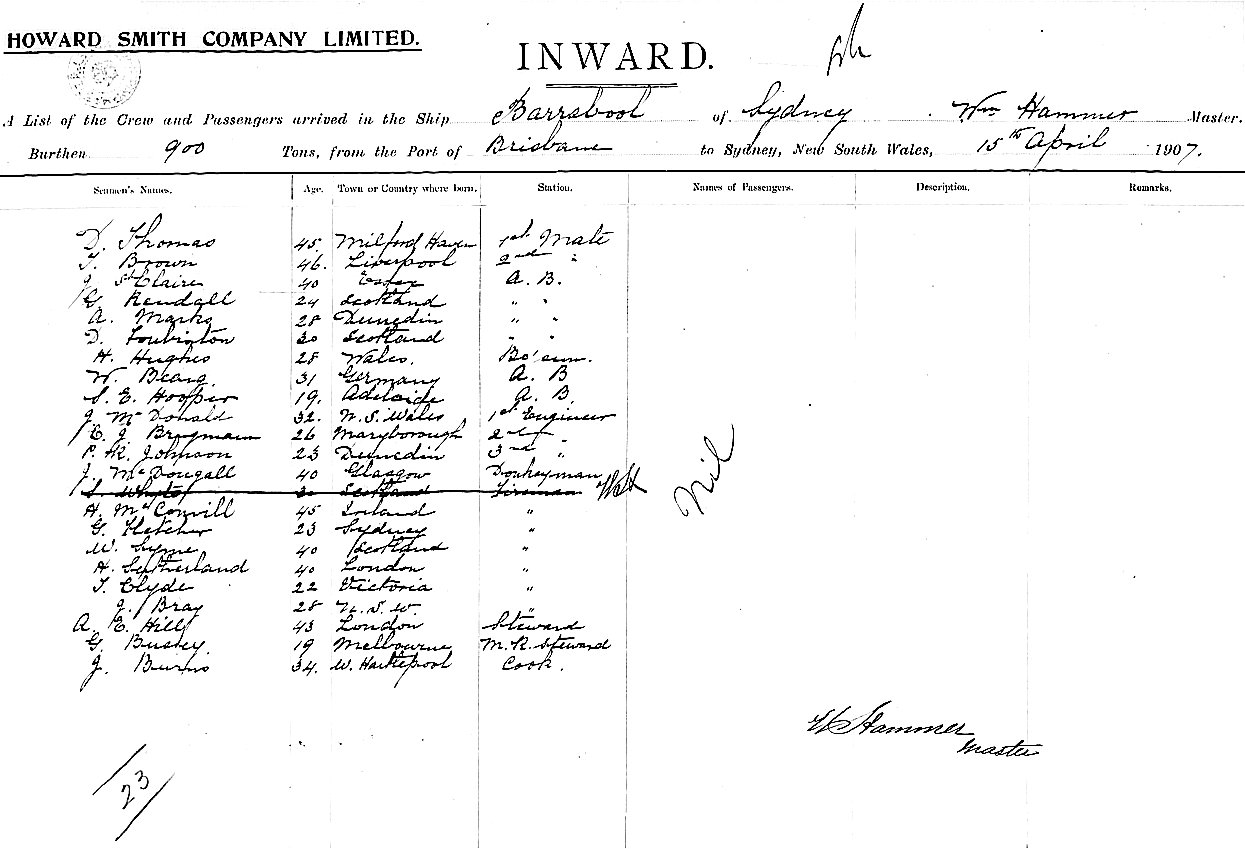 HOWARD SMITH COMPANY LIMITED.
INWARD.
A List of the Crew and Passengers arrived in the Ship Barrabool of Sydney Wm Hammer Master.
Burthen 900 Tons, from the Port of Brisbane to Sydney, New South Wales, 15th April 1907.
Seamen's Names. Age. Town or Country where born. Station. Names of Passengers. Description. Remarks.
D. Thomas 45. Milford Haven 1st Mate
T. Brown 46. Liverpool 2nd "
J. St Claire 40 Essex A. B.
G. Kendall 24 Scotland " "
A. Marks 28 Dunedin " "
D. 30 Scotland " "
H. Hughes 28 Wales. Bo'sun.
W. 31 Germany A. B
S. E. Hooper 19. Adelaide A. B.
J. McDonald 32. N. S. Wales 1st Engineer
C. J. 26 Maryborough 2nd "
P. K. Johnson 23 Dunedin 3rd "
J. McDougall 40 Glasgow Donkeyman
S. Whyte 30 Scotland Fireman
H. McConvill 45 Ireland "
G. Fletcher 23 Sydney "
W. Syme 40 Scotland "
H. Sutherland 40 London "
T. Clyde 22 Victoria "
J. Bray 28 N. S. W. "
A. E. Hill 43 London Steward
G. 19 Melbourne M. R. Steward
J. Burns 34. W. Hartlepool Cook.
Nil
W Hammer
Master
23